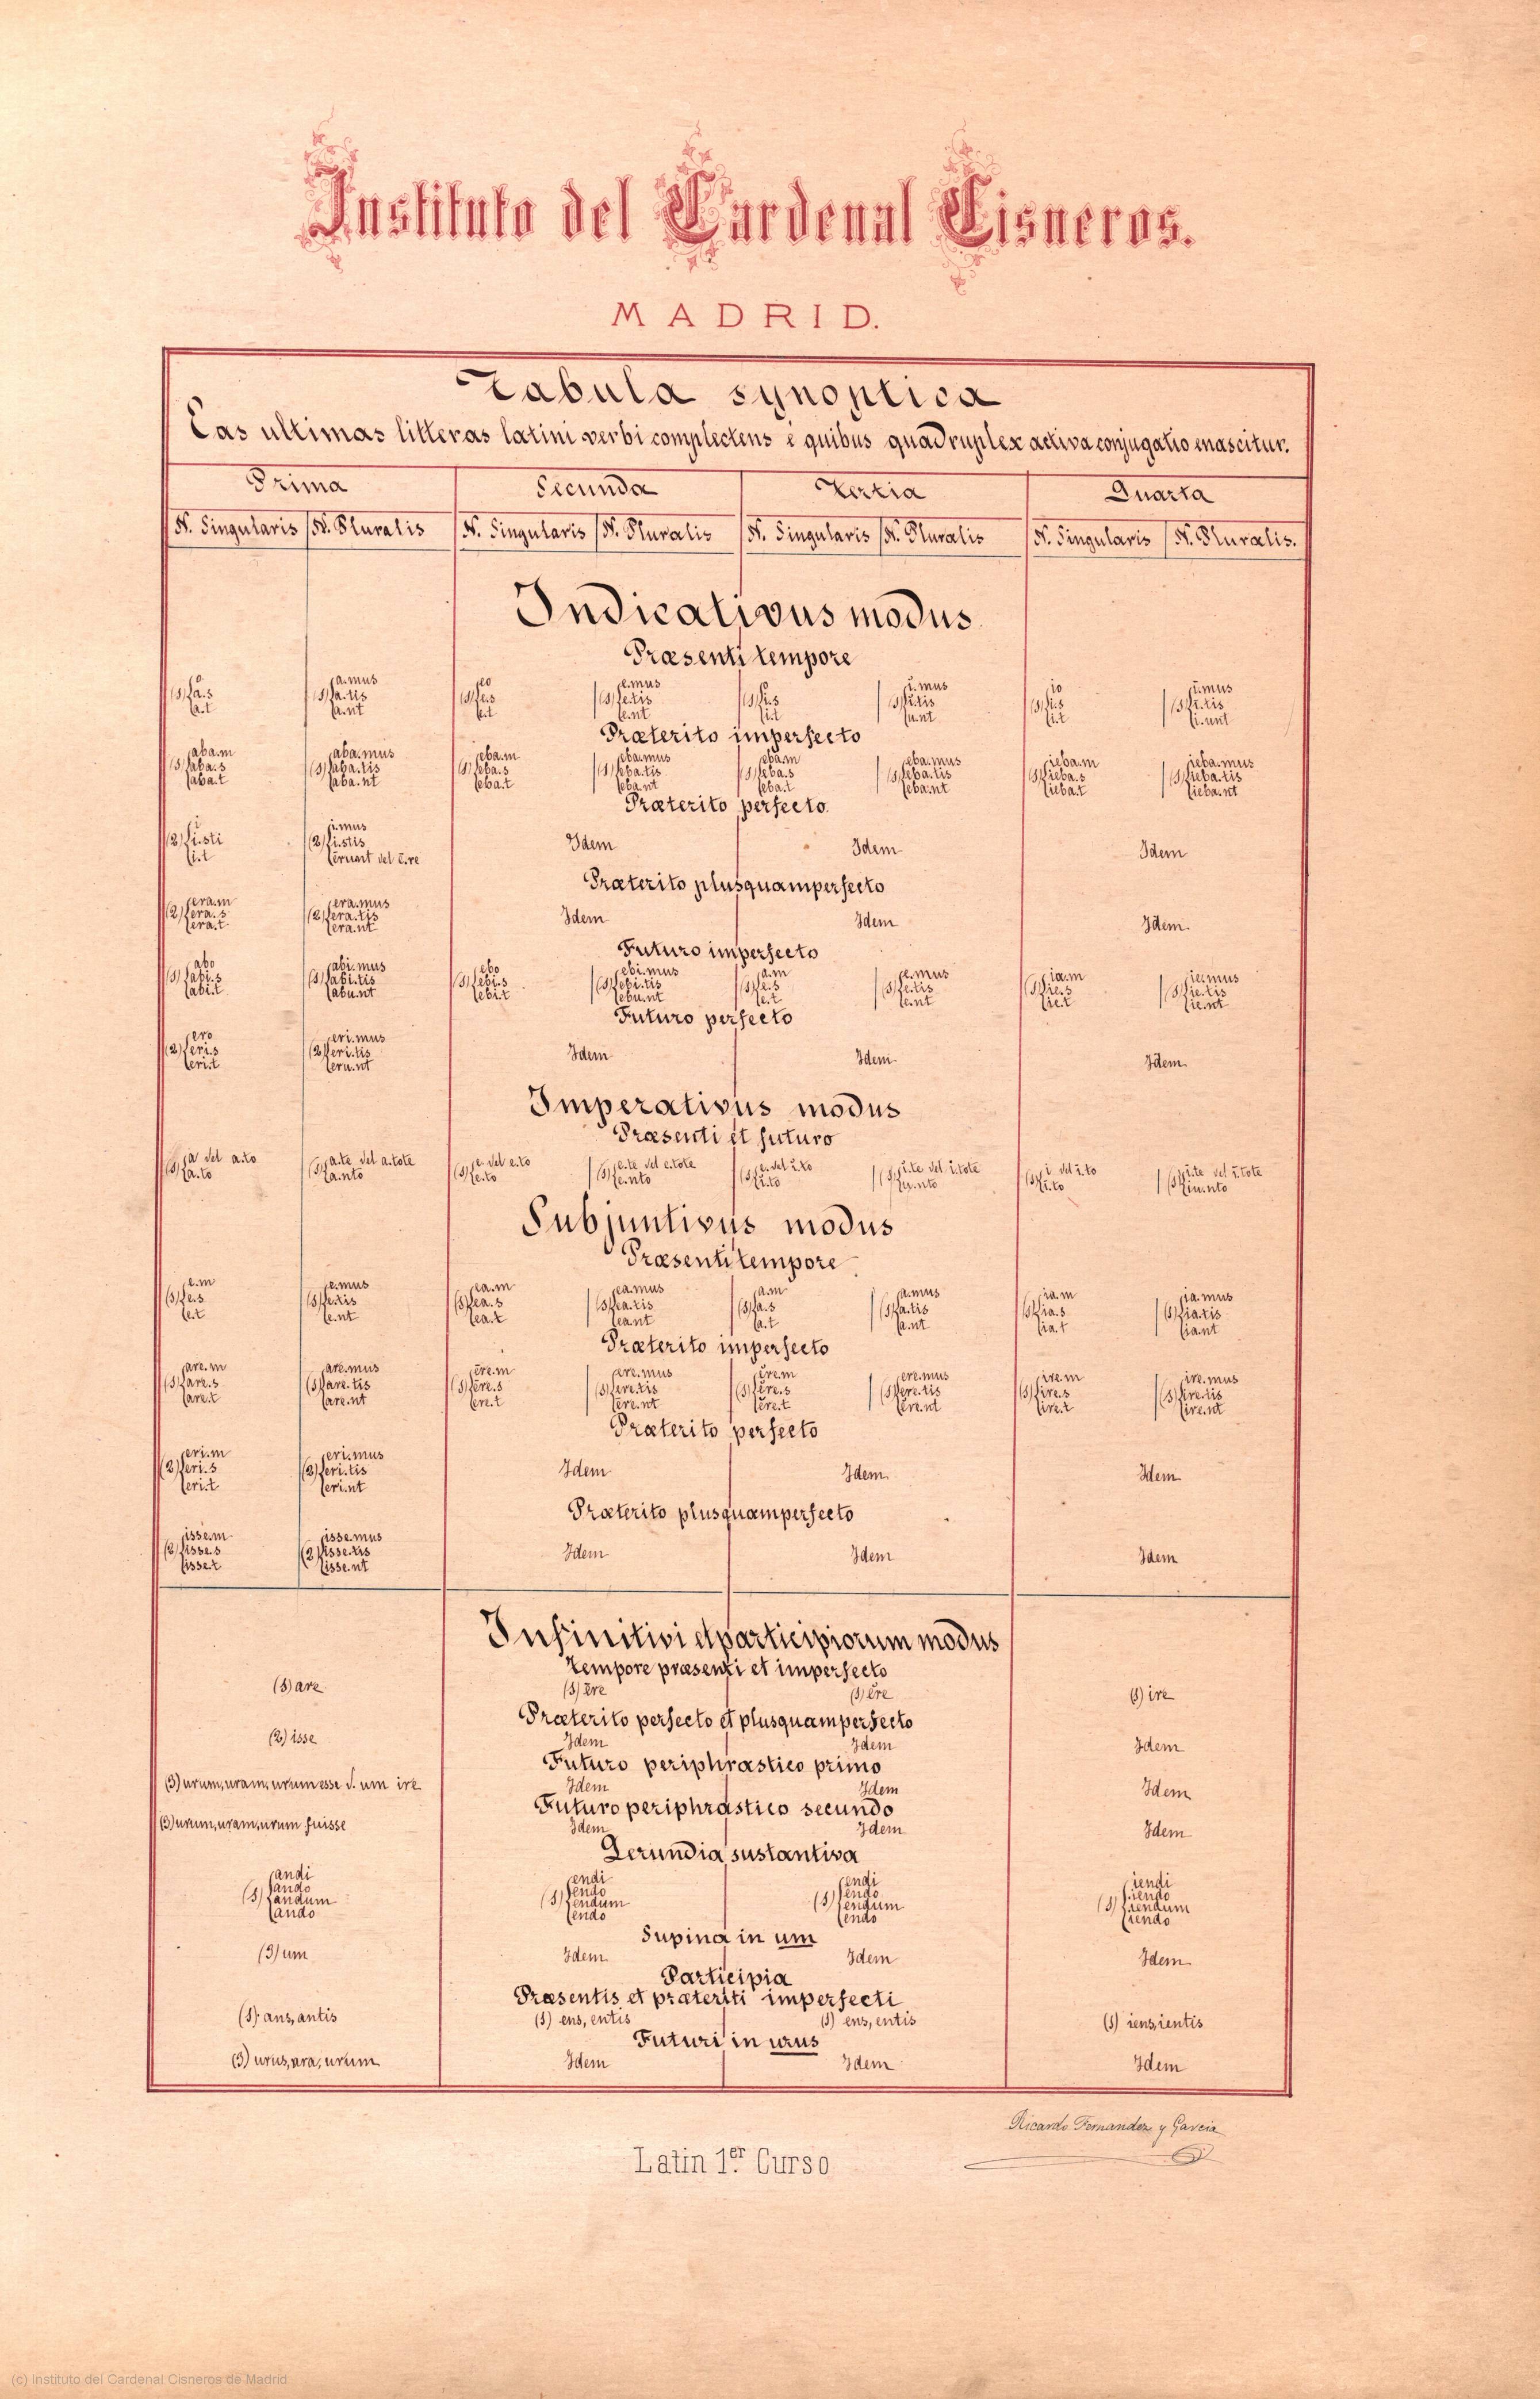 Instituto del Cardenal Cisneros.
MADRID.
Tabula synoptica
Eas ultimas litteras latini verbi complectens è quibus quadruplex activa conjugatio enascitur.
Prima Secunda Tertia Quarta
N. Singularis N. Pluralis N. Singularis N. Pluralis N. Singularis N. Pluralis N. Singularis N. Pluralis.
Indicativus modus
Præsenti tempore
o a.mus eo e.mus o i.mus io i.mus
(1) a.s (1) a.tis (1) e.s (1) e.tis (1) i.s (1) i.tis (1) i.s (1) i.tis
a.t a.nt e.t e.nt i.t u.nt i.t i.unt
Præterito imperfecto
aba.m aba.mus eba.m eba.mus eba.m eba.mus ieba.m ieba.mus
(1) aba.s (1) aba.tis (1) eba.s (1) eba.tis (1) eba.s (1) eba.tis (1) ieba.s (1) ieba.tis
aba.t aba.nt eba.t eba.nt eba.t eba.nt ieba.t ieba.nt
Præterito perfecto.
i i.mus
(2) i.sti (2) i.stis Idem Idem Idem
i.t erunt vel ē.re
Præterito plusquamperfecto
era.m era.mus
(2) era.s (2) era.tis Idem Idem Idem.
era.t era.nt
Futuro imperfecto
abo abi.mus ebo ebi.mus a.m e.mus ia.m ie.mus
(1) abi.s (1) abi.tis (1) ebi.s (1) ebi.tis (1) e.s (1) e.tis (1) ie.s (1) ie.tis
abi.t abu.nt ebi.t ebu.nt e.t e.nt ie.t ie.nt
Futuro perfecto
ero eri.mus
(2) eri.s (2) eri.tis Idem Idem. Idem.
eri.t eru.nt
Imperativus modus
Præsenti et futuro
a vel a.to a.te vel a.tote e. vel e.to e.te vel e.tote e. vel i.to i.te vel i.tote i vel i.to i.te vel i.tote
(1) a.to (1) a.nto (1) e.to (1) e.nto (1) i.to (1) u.nto (1) i.to (1) iu.nto
Subjuntivus modus
Præsenti tempore
e.m e.mus ea.m ea.mus a.m a.mus ia.m ia.mus
(1) e.s (1) e.tis (1) ea.s (1) ea.tis (1) a.s (1) a.tis (1) ia.s (1) ia.tis
e.t e.nt ea.t ea.nt a.t a.nt ia.t ia.nt
Præterito imperfecto
are.m are.mus ēre.m ere.mus ĕre.m ere.mus ire.m ire.mus
(1) are.s (1) are.tis (1) ēre.s (1) ere.tis (1) ĕre.s (1) ere.tis (1) ire.s (1) ire.tis
are.t are.nt ere.t ere.nt ere.t ere.nt ire.t ire.nt
Præterito perfecto
eri.m eri.mus
(2) eri.s (2) eri.tis Idem Idem. Idem
eri.t eri.nt
Præterito plusquamperfecto
isse.m isse.mus
(2) isse.s (2) isse.tis Idem Idem Idem
isse.t isse.nt
Infinitivi et participiorum modus
Tempore præsenti et imperfecto
(1) are (1) ēre (1) ĕre (1) ire
Præterito perfecto et plusquamperfecto
(2) isse Idem Idem Idem
Futuro periphrastico primo
(3) urum, uram, urum esse v. um ire Idem Idem Idem
Futuro periphrastico secundo
(3) urum, uram, urum fuisse Idem Idem Idem
Gerundia sustantiva
andi endi endi iendi
ando endo endo iendo
(1) andum (1) endum (1) endum (1) iendum
ando endo endo iendo
Supina in um
(3) um Idem Idem Idem
Participia
Præsentis et præteriti imperfecti
(1) ans, antis (1) ens, entis (1) ens, entis (1) iens, ientis
Futuri in urus
(3) urus, ura, urum Idem Idem Idem
Ricardo Fernandez y Garcia
Latin 1.er Curso
(c) Instituto del Cardenal Cisneros de Madrid